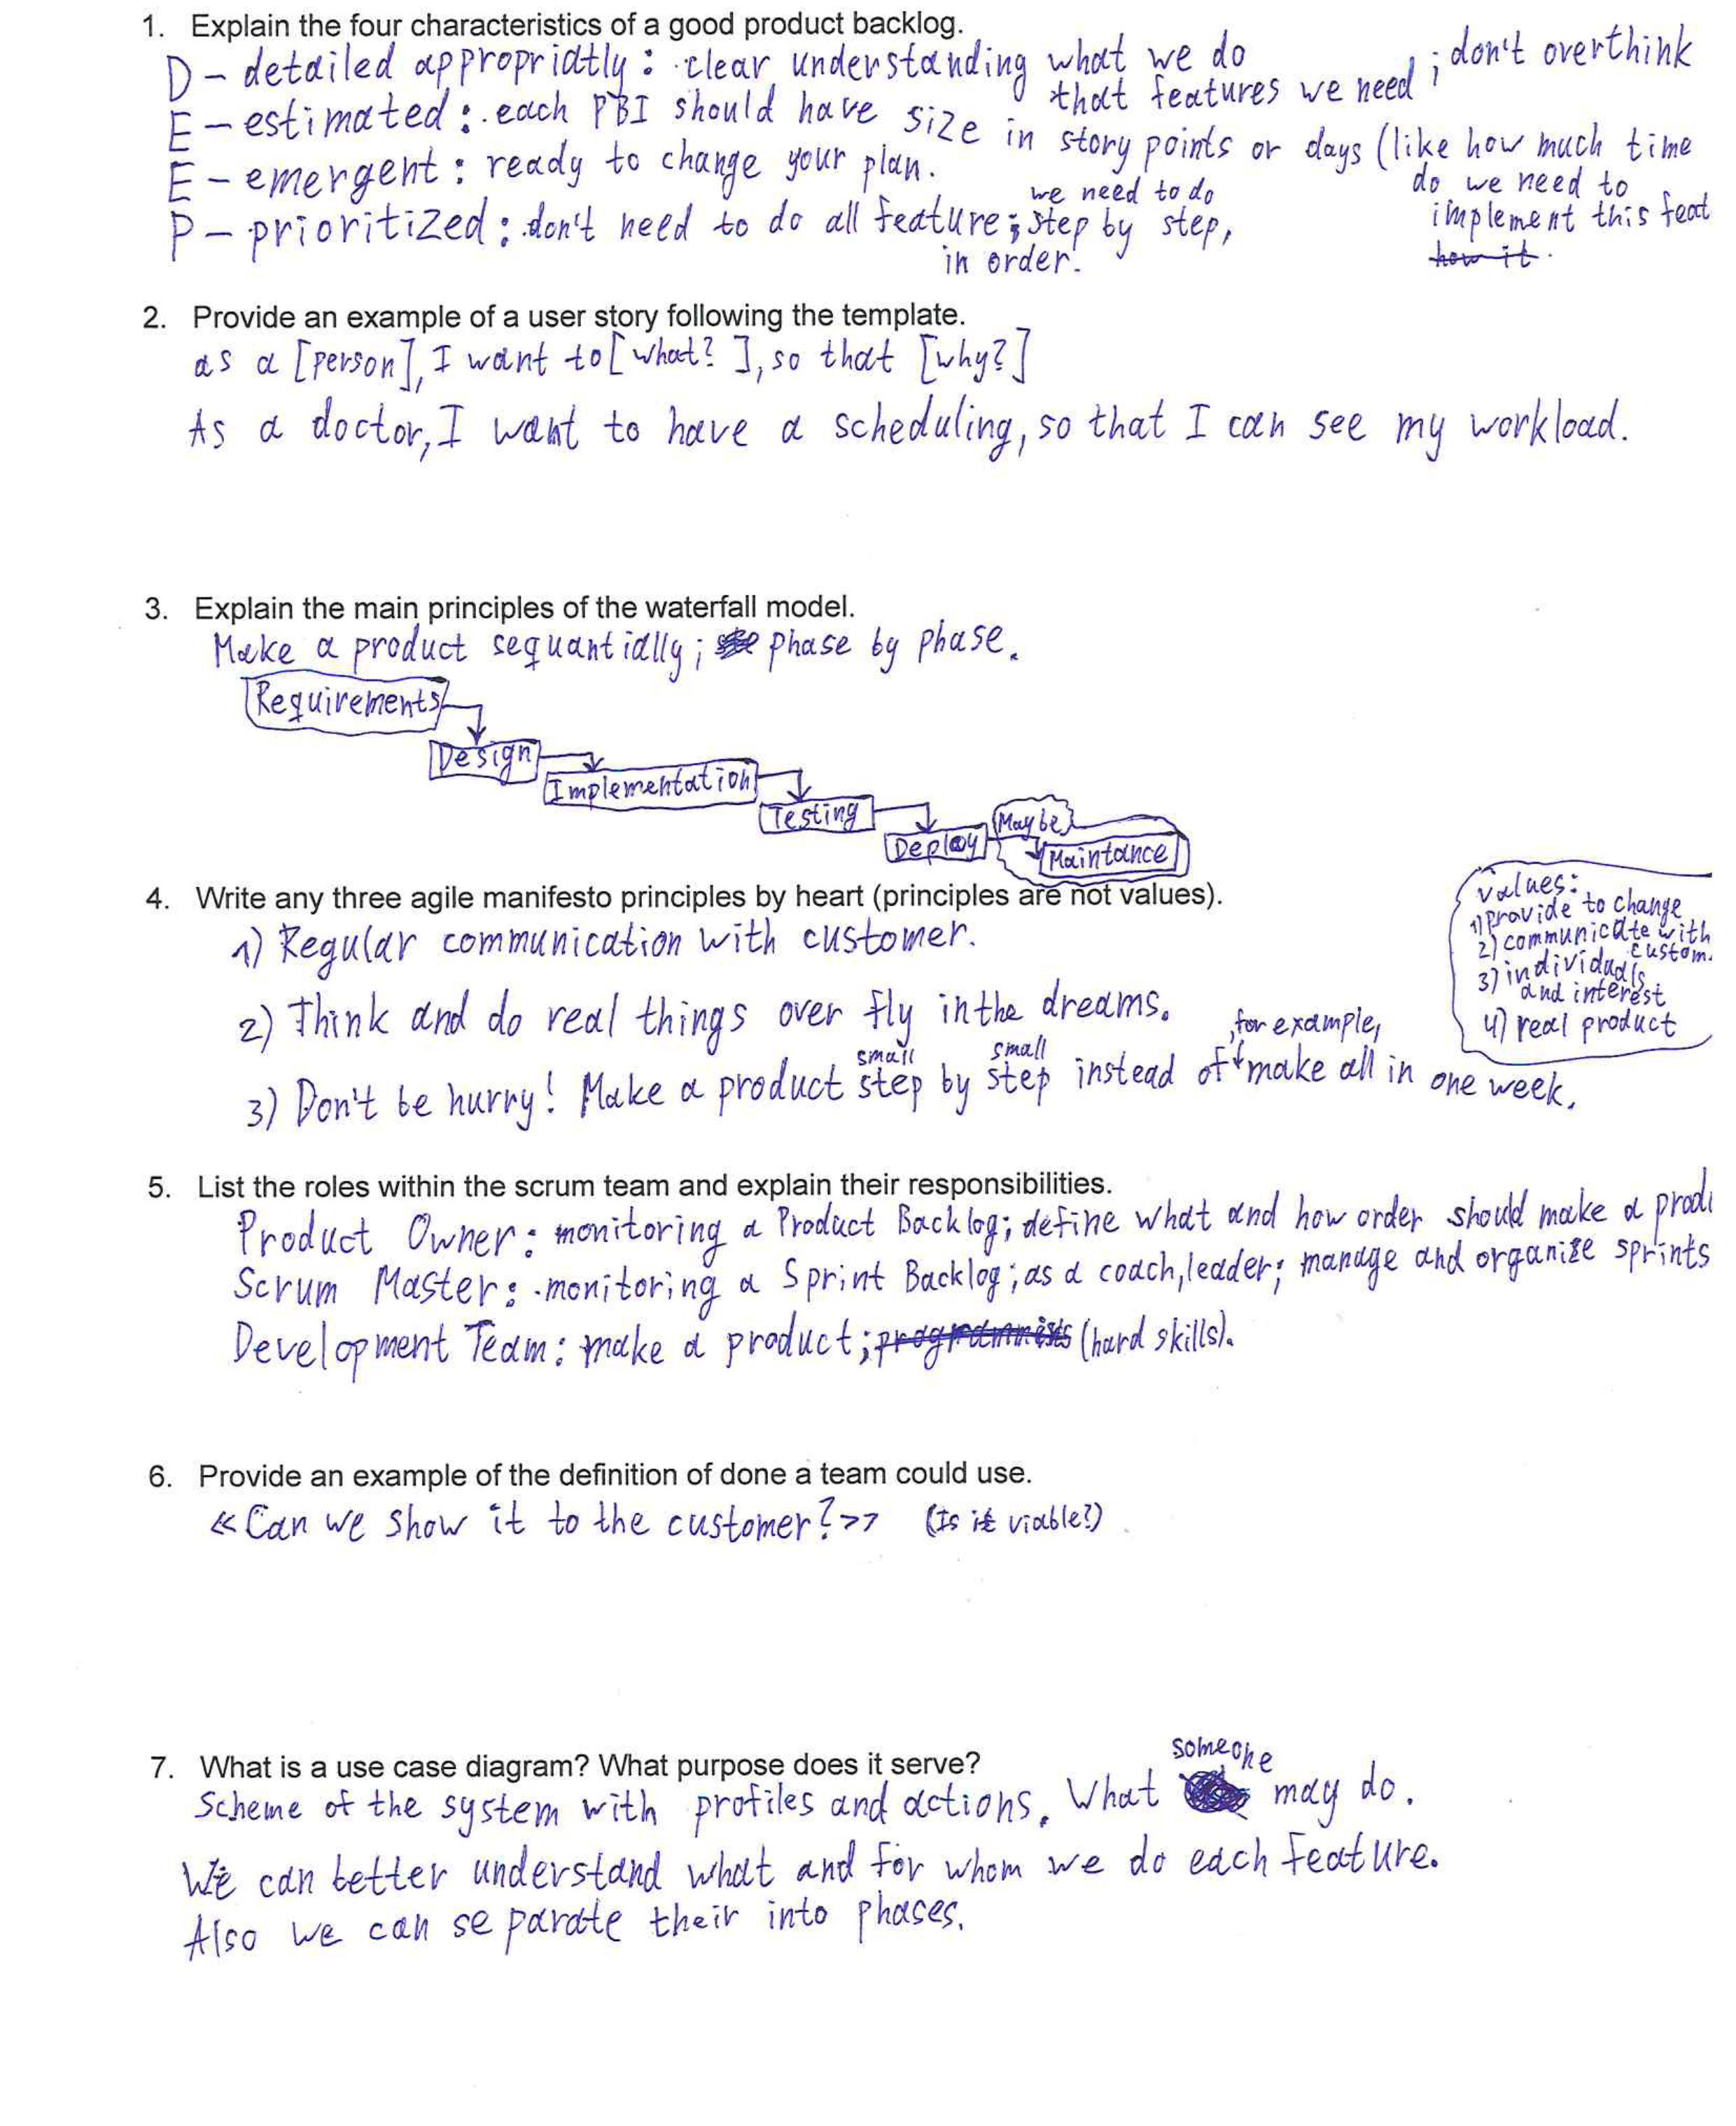 1. Explain the four characteristics of a good product backlog.
D – detailed appropriatly : clear understanding what we do ; don't overthink
that features we need
E – estimated : each PBI should have size in story points or days (like how much time
do we need to
implement this feat
how it.
E – emergent : ready to change your plan.
we need to do
P – prioritized : don't need to do all feature ; step by step,
in order.
2. Provide an example of a user story following the template.
as a [person], I want to [what? ], so that [why?]
As a doctor, I want to have a scheduling, so that I can see my workload.
3. Explain the main principles of the waterfall model.
Make a product sequantially; phase by phase.
Requirements
Design
Implementation
Testing
Deploy
Maybe
Maintance
4. Write any three agile manifesto principles by heart (principles are not values).
1) Regular communication with customer.
2) Think and do real things over fly in the dreams.
, for example,
small small
3) Don't be hurry! Make a product step by step instead of make all in one week.
values:
1) provide to change
2) communicate with
custom.
3) individuals
and interest
4) real product
5. List the roles within the scrum team and explain their responsibilities.
Product Owner : monitoring a Product Backlog; define what and how order should make a produ
Scrum Master : monitoring a Sprint Backlog ; as a coach, leader; manage and organize sprints
Development Team : make a product ; programmists (hard skills).
6. Provide an example of the definition of done a team could use.
<< Can we show it to the customer? >> (Is it viable?)
7. What is a use case diagram? What purpose does it serve?
someone
Scheme of the system with profiles and actions. What may do.
We can better understand what and for whom we do each feature.
Also we can separate their into phases.